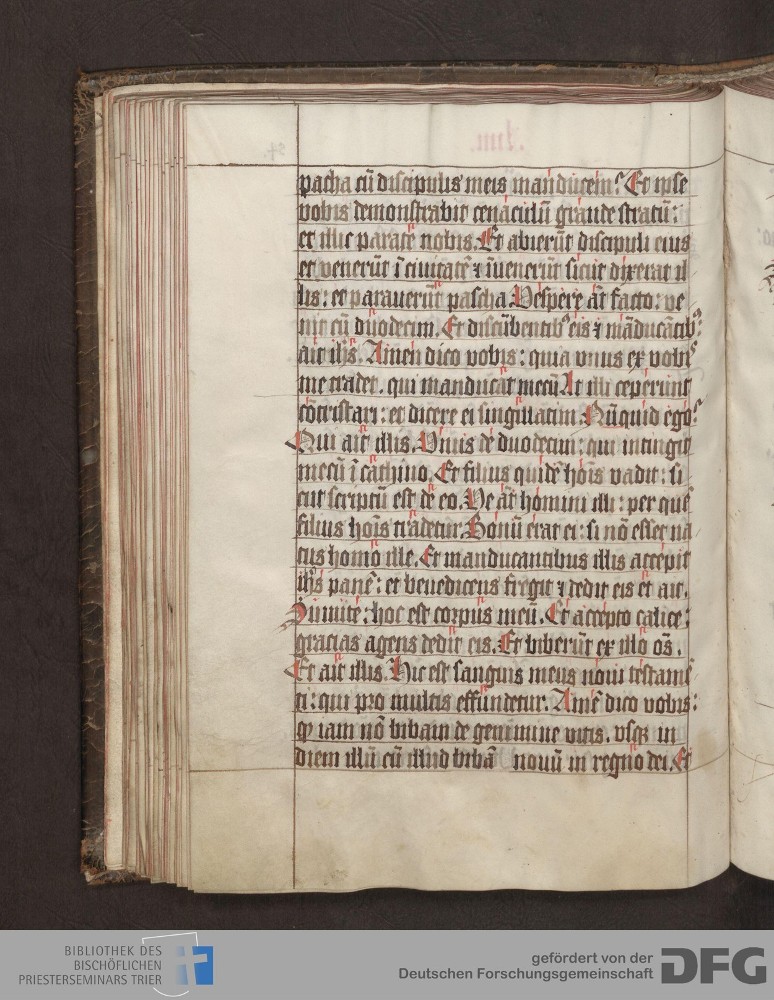 pascha cū discipulis meis manducem? Et ipse
vobis demonstrabit cenaculū grande stratū:
et illic parate nobis. Et abierūt discipuli eius
et venerūt ī ciuitatē ⁊ īuenerūt sicut dixerat il
lis: et parauerūt pascha Vespere āt facto: ve
nit cū duodecim. Et discūbentibꝰ eis ⁊ māducātibꝰ:
ait ihs̄. Amen dico vobis: quia vnus ex vobis
me tradet. qui manducat mecū At illi ceperunt
cōtristari: et dicere ei singillatim Nūquid ego?
Qui ait illis. Vnus de duodecim: qui intingit
mecū ī cathino. Et filius quidē hoīs vadit: si
cut scriptū est de eo. Ve āt homini illi: per quē
filius hoīs tradetur. Bonū erat ei: si nō esset na
tus homo ille. Et manducantibus illis accepit
ihs̄ panē: et benedicens fregit ⁊ dedit eis et ait.
Sumite: hoc est corpus meū. Et accepto calice:
gracias agens dedit eis. Et biberūt ex illo oēs.
Et ait illis. Hic est sanguis meus noui testamē
ti: qui pro multis effundetur. Amē dico vobis:
qꝫ iam nō bibam de genimine vitis. vsqꝫ in
diem illū cū illud bibā nouū in regno dei. Et
BIBLIOTHEK DES
BISCHÖFLICHEN
PRIESTERSEMINARS TRIER
gefördert von der
Deutschen Forschungsgemeinschaft
DFG